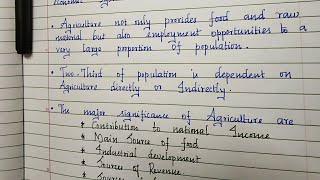 • Agriculture not only provides food and raw
material but also employment opportunities to a
very large proportion of population.
• Two-Third of population is dependent on
Agriculture directly or Indirectly.
• The major significance of Agriculture are
* Contribution to national Income
* Main Source of food
* Industrial development
* Sources of Revenue